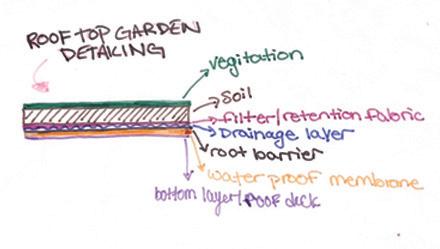 ROOF TOP GARDEN
DETAKING
vegitation
soil
filter/retention fabric
Drainage layer
root barrier
water proof membrane
bottom layer/roof deck